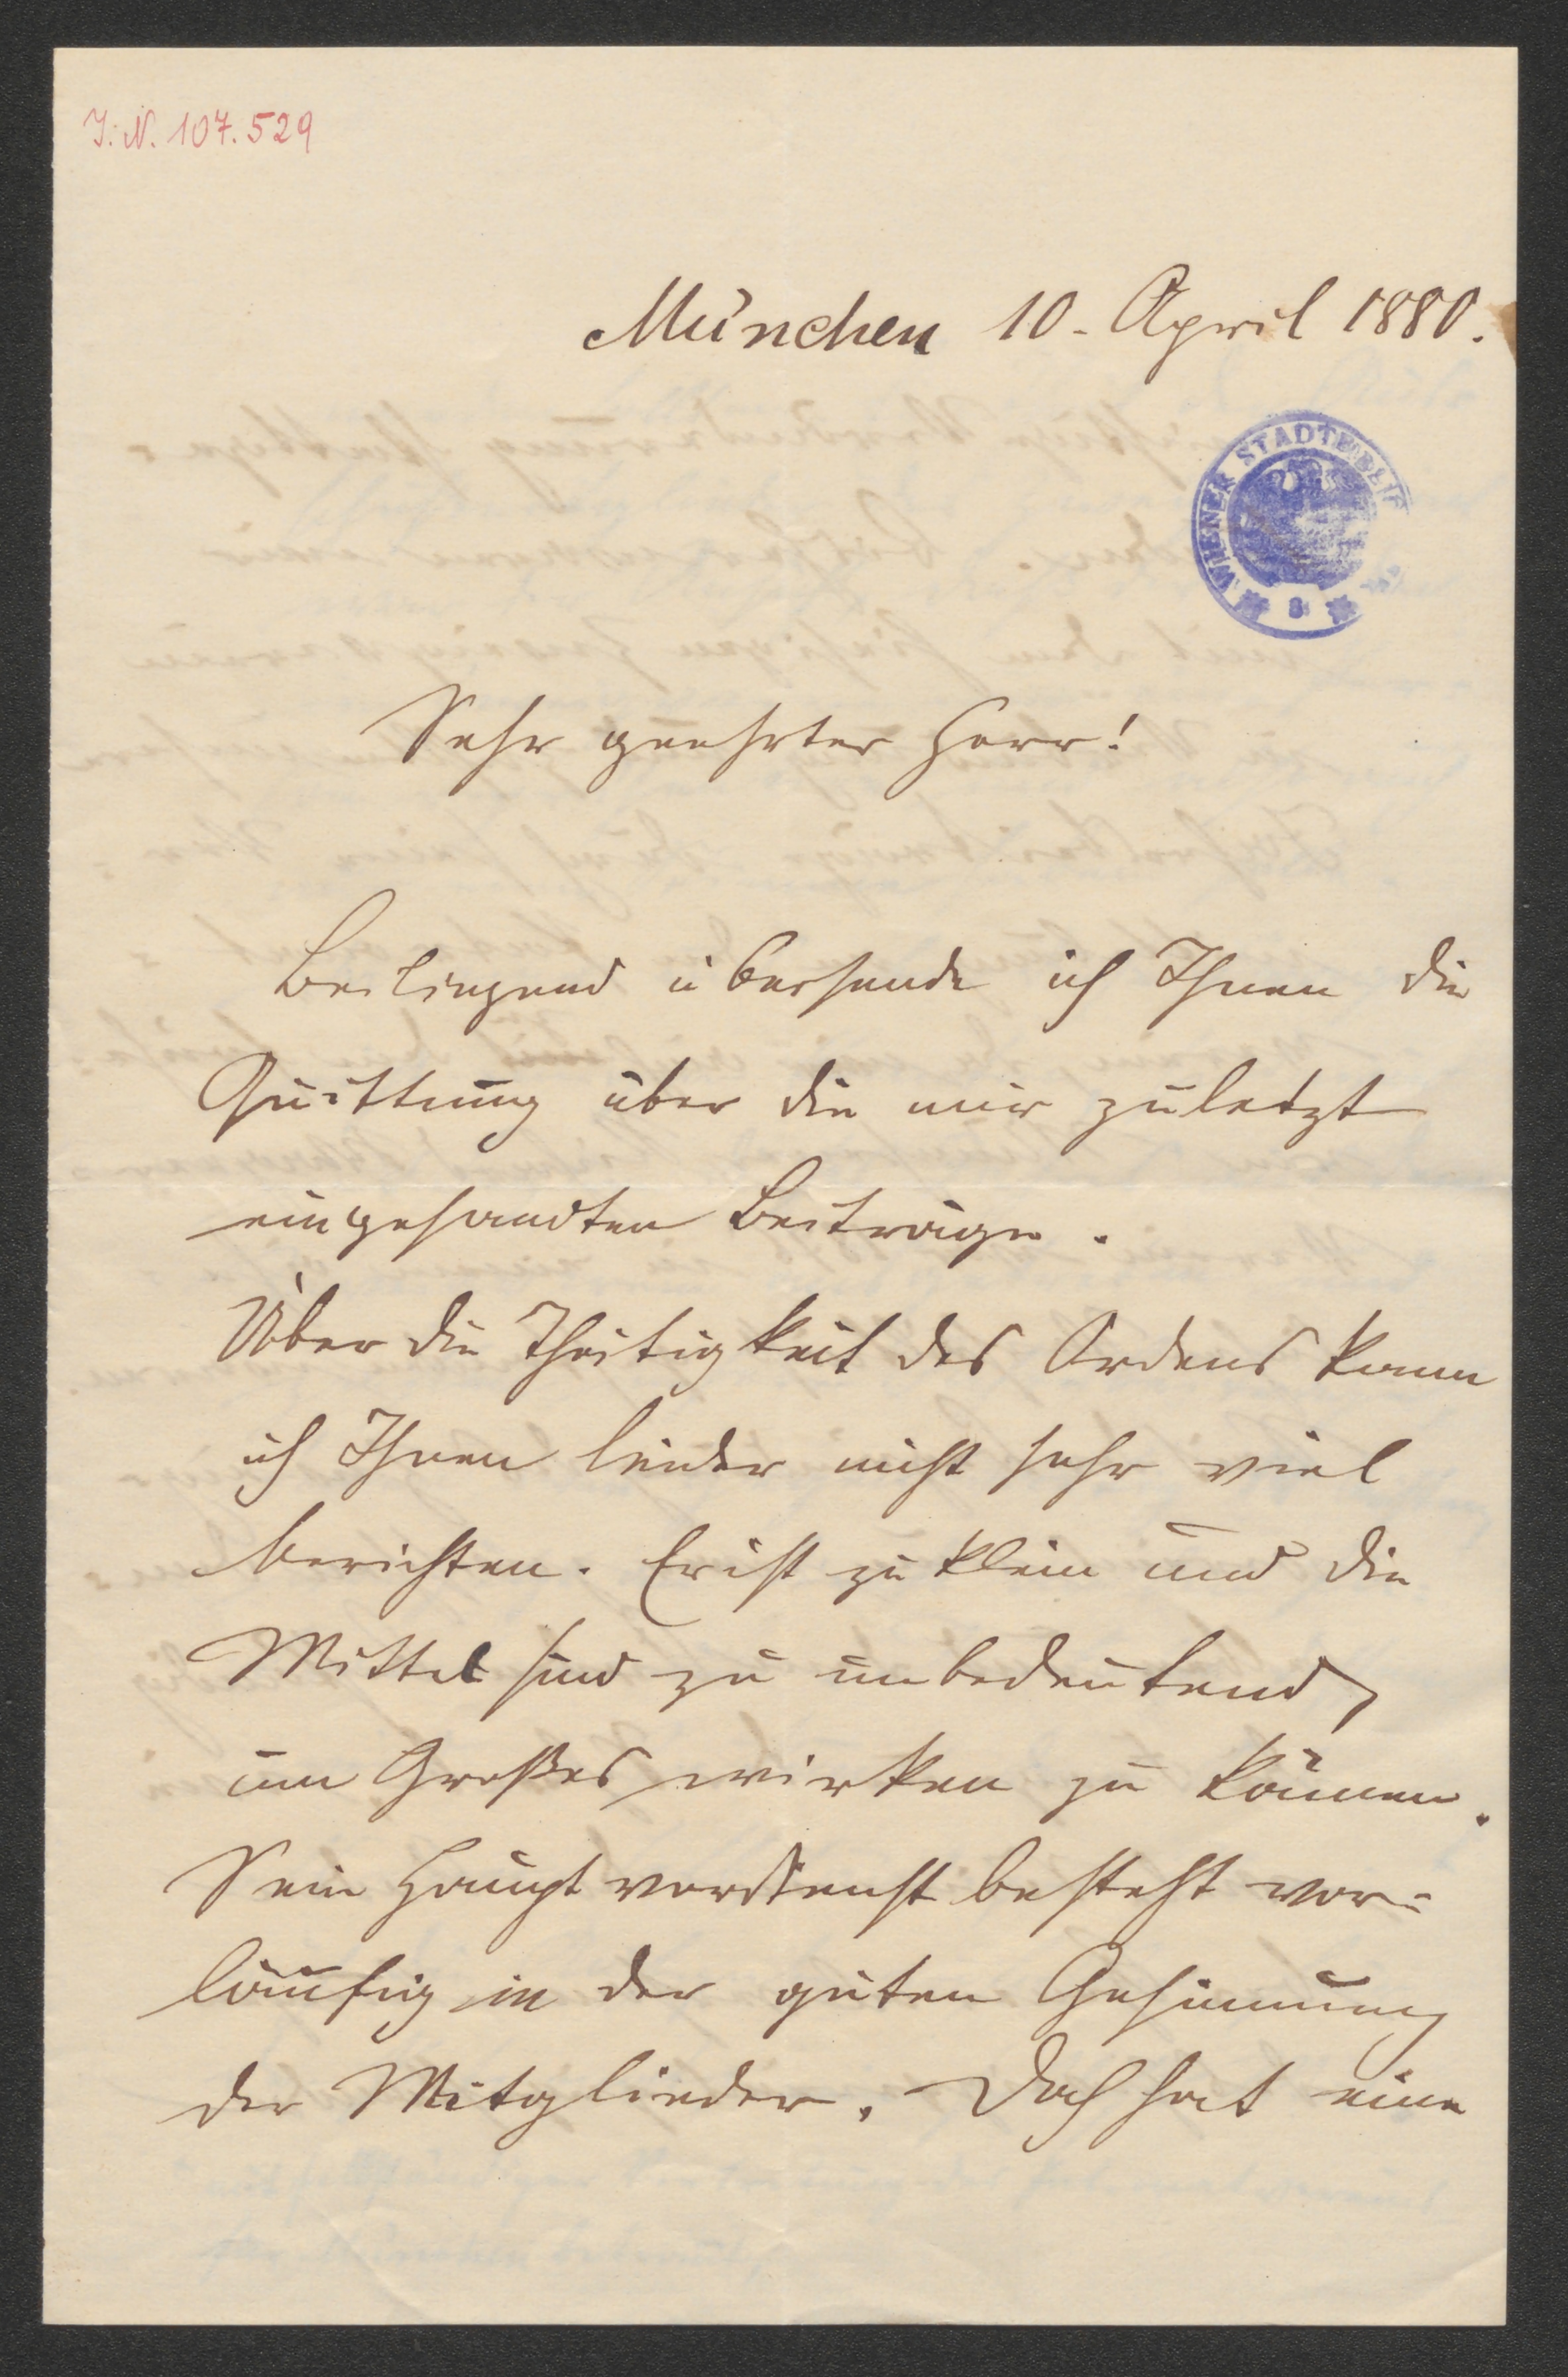 I. N. 107.529
München 10. April 1880.
WIENER STADTBIBL
8
Sehr geehrter Herr!
Beiliegend übersende ich Ihnen die
Quittung über die mir zuletzt
eingesandten Beiträge.
Über die Thätigkeit des Ordens kann
ich Ihnen leider nicht sehr viel
berichten. Er ist zu klein und die
Mittel sind zu unbedeutend,
um Großes wirken zu können.
Sein Hauptverdienst besteht vor-
läufig in der guten Gesinnung
der Mitglieder. Doch hat eine